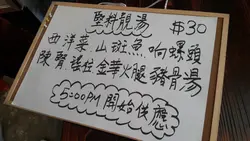 聖料靚湯 $30
西洋菜.山斑魚.响螺頭
陳腎.瑤柱.金華火腿.豬骨湯
5:00PM 開始供應